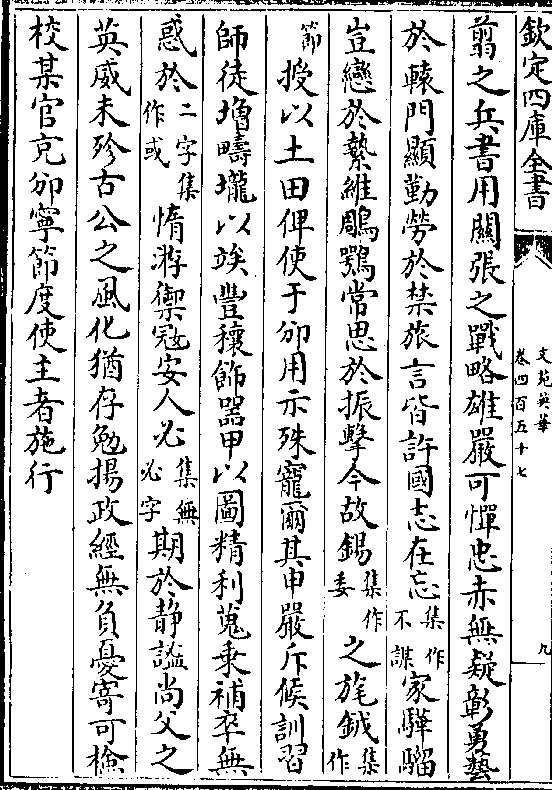 欽定四庫全書
文苑英華
卷四百五十七
九
翦之兵書用關張之戰略雄嚴可憚忠赤無疑彰勇藝
於轅門顯勤勞於禁旅言皆許國志在忘集作不謀家驊騮
豈戀於縶維鵰鶚常思於振擊今故錫集作委之旄鉞集作
節授以土田俾使于邠用示殊寵爾其申嚴斥候訓習
師徒增疇壠以竢豐穰飾器甲以圖精利蒐乗補卒無
惑於二字集作或惰游禦冦安人必集無必字期於静謐尚父之
英威未殄古公之風化猶存勉揚政經無負憂寄可檢
校某官充邠寧節度使主者施行